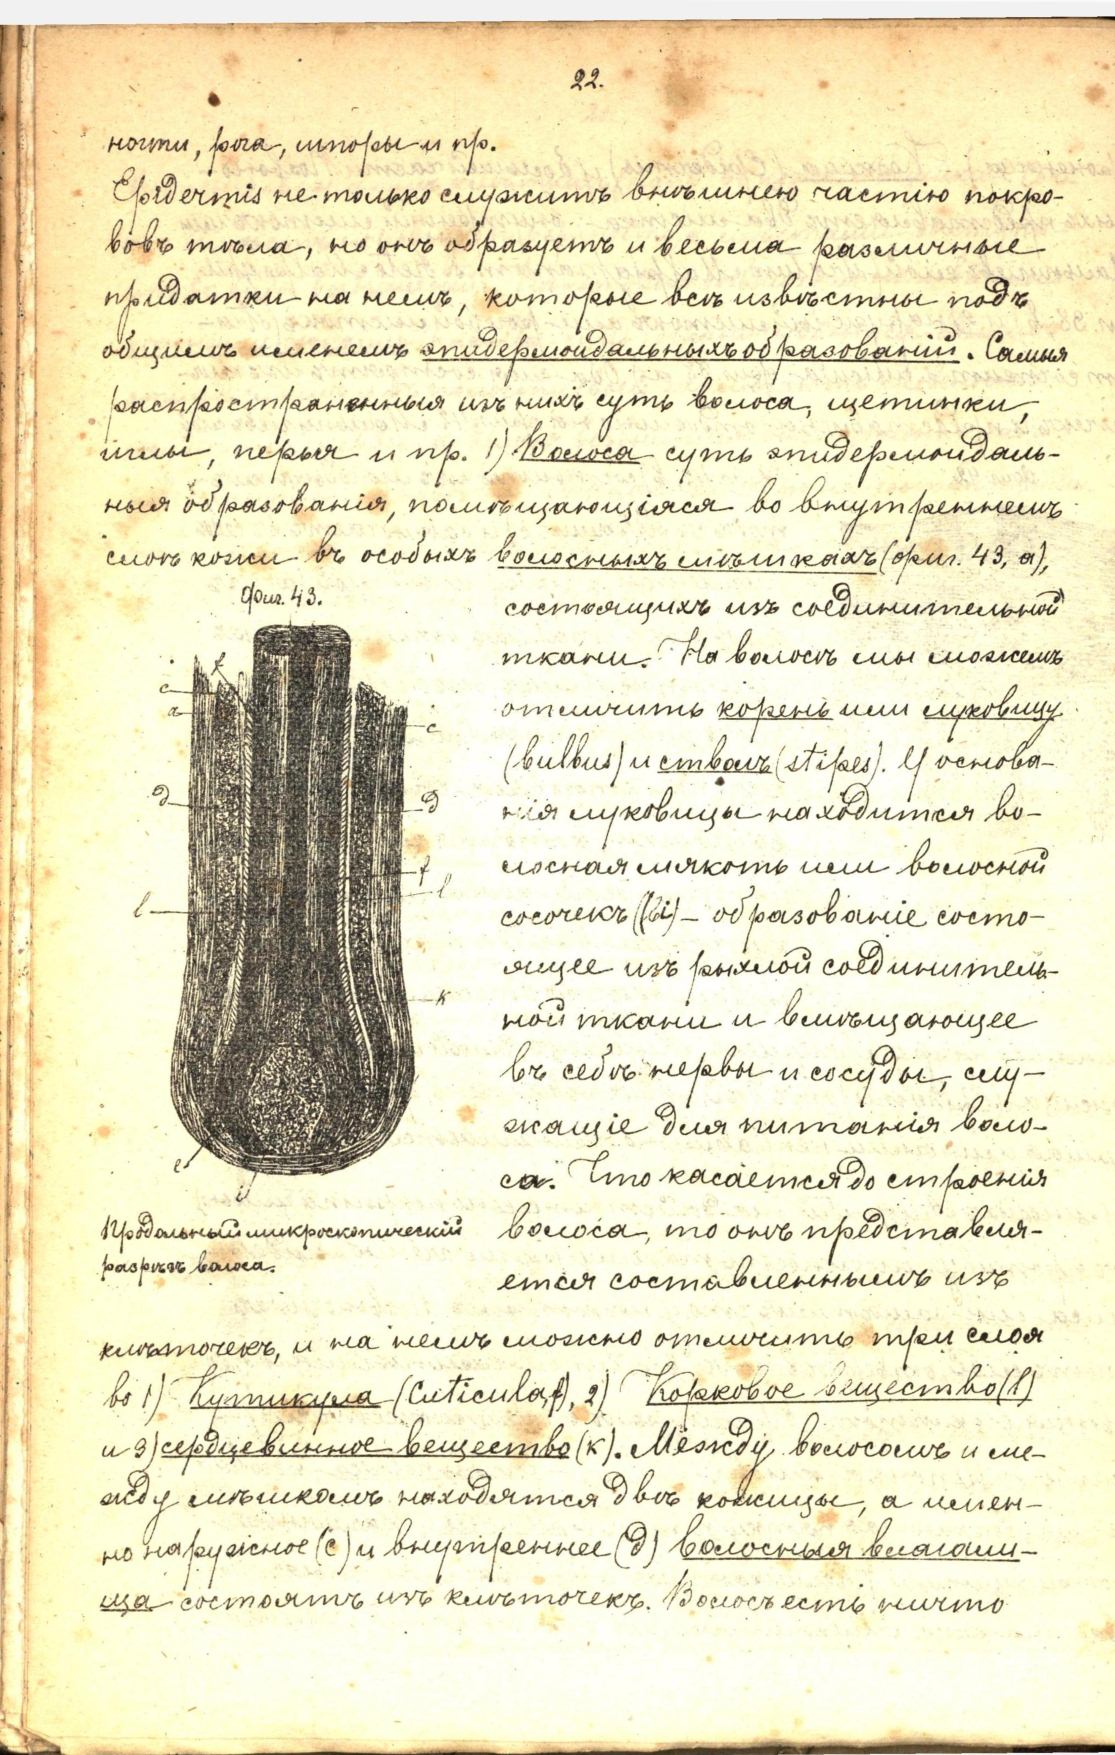 22.
ногти, рога, шпоры и пр.
Epidermis не только служитъ внѣшнею частію покро-
вовъ тѣла, но онъ образуетъ и весьма различные
придатки на немъ, которые всѣ извѣстны подъ
общимъ именемъ эпидермоидальныхъ образованій. Самыя
распространенныя изъ нихъ суть волоса, щетинки,
иглы, перья и пр. 1) Волоса суть эпидермоидаль-
ныя образованія, помѣщающіяся во внутреннемъ
слоѣ кожи въ особыхъ волосныхъ мѣшкахъ (фиг. 43, а),
Фиг. 43.
f
c
a
c
д
д
f
l
l
к
e
Продольный микроскопическій
разрѣзъ волоса.
состоящихъ изъ соединительной
ткани. На волосѣ мы можемъ
отличить корень или луковицу
(bulbus) и стволъ (stipes). У основа-
нія луковицы находится во-
лосная мякоть или волосной
сосочекъ – образованіе состо-
ящее изъ рыхлой соединитель-
ной ткани и вмѣщающее
въ себѣ нервы и сосуды, слу-
жащіе для питанія воло-
са. Что касается до строенія
волоса, то онъ представля-
ется составленнымъ изъ
клѣточекъ, и на немъ можно отличить три слоя
во 1) Кутикула (Cuticula, f), 2) Корковое вещество (l)
и 3) сердцевинное вещество (к). Между волосомъ и ме-
жду мѣшкомъ находятся двѣ кожицы, а имен-
но наружное (с) и внутреннее (д) волосныя влагали-
ща состоятъ изъ клѣточекъ. Волосъ есть ничто